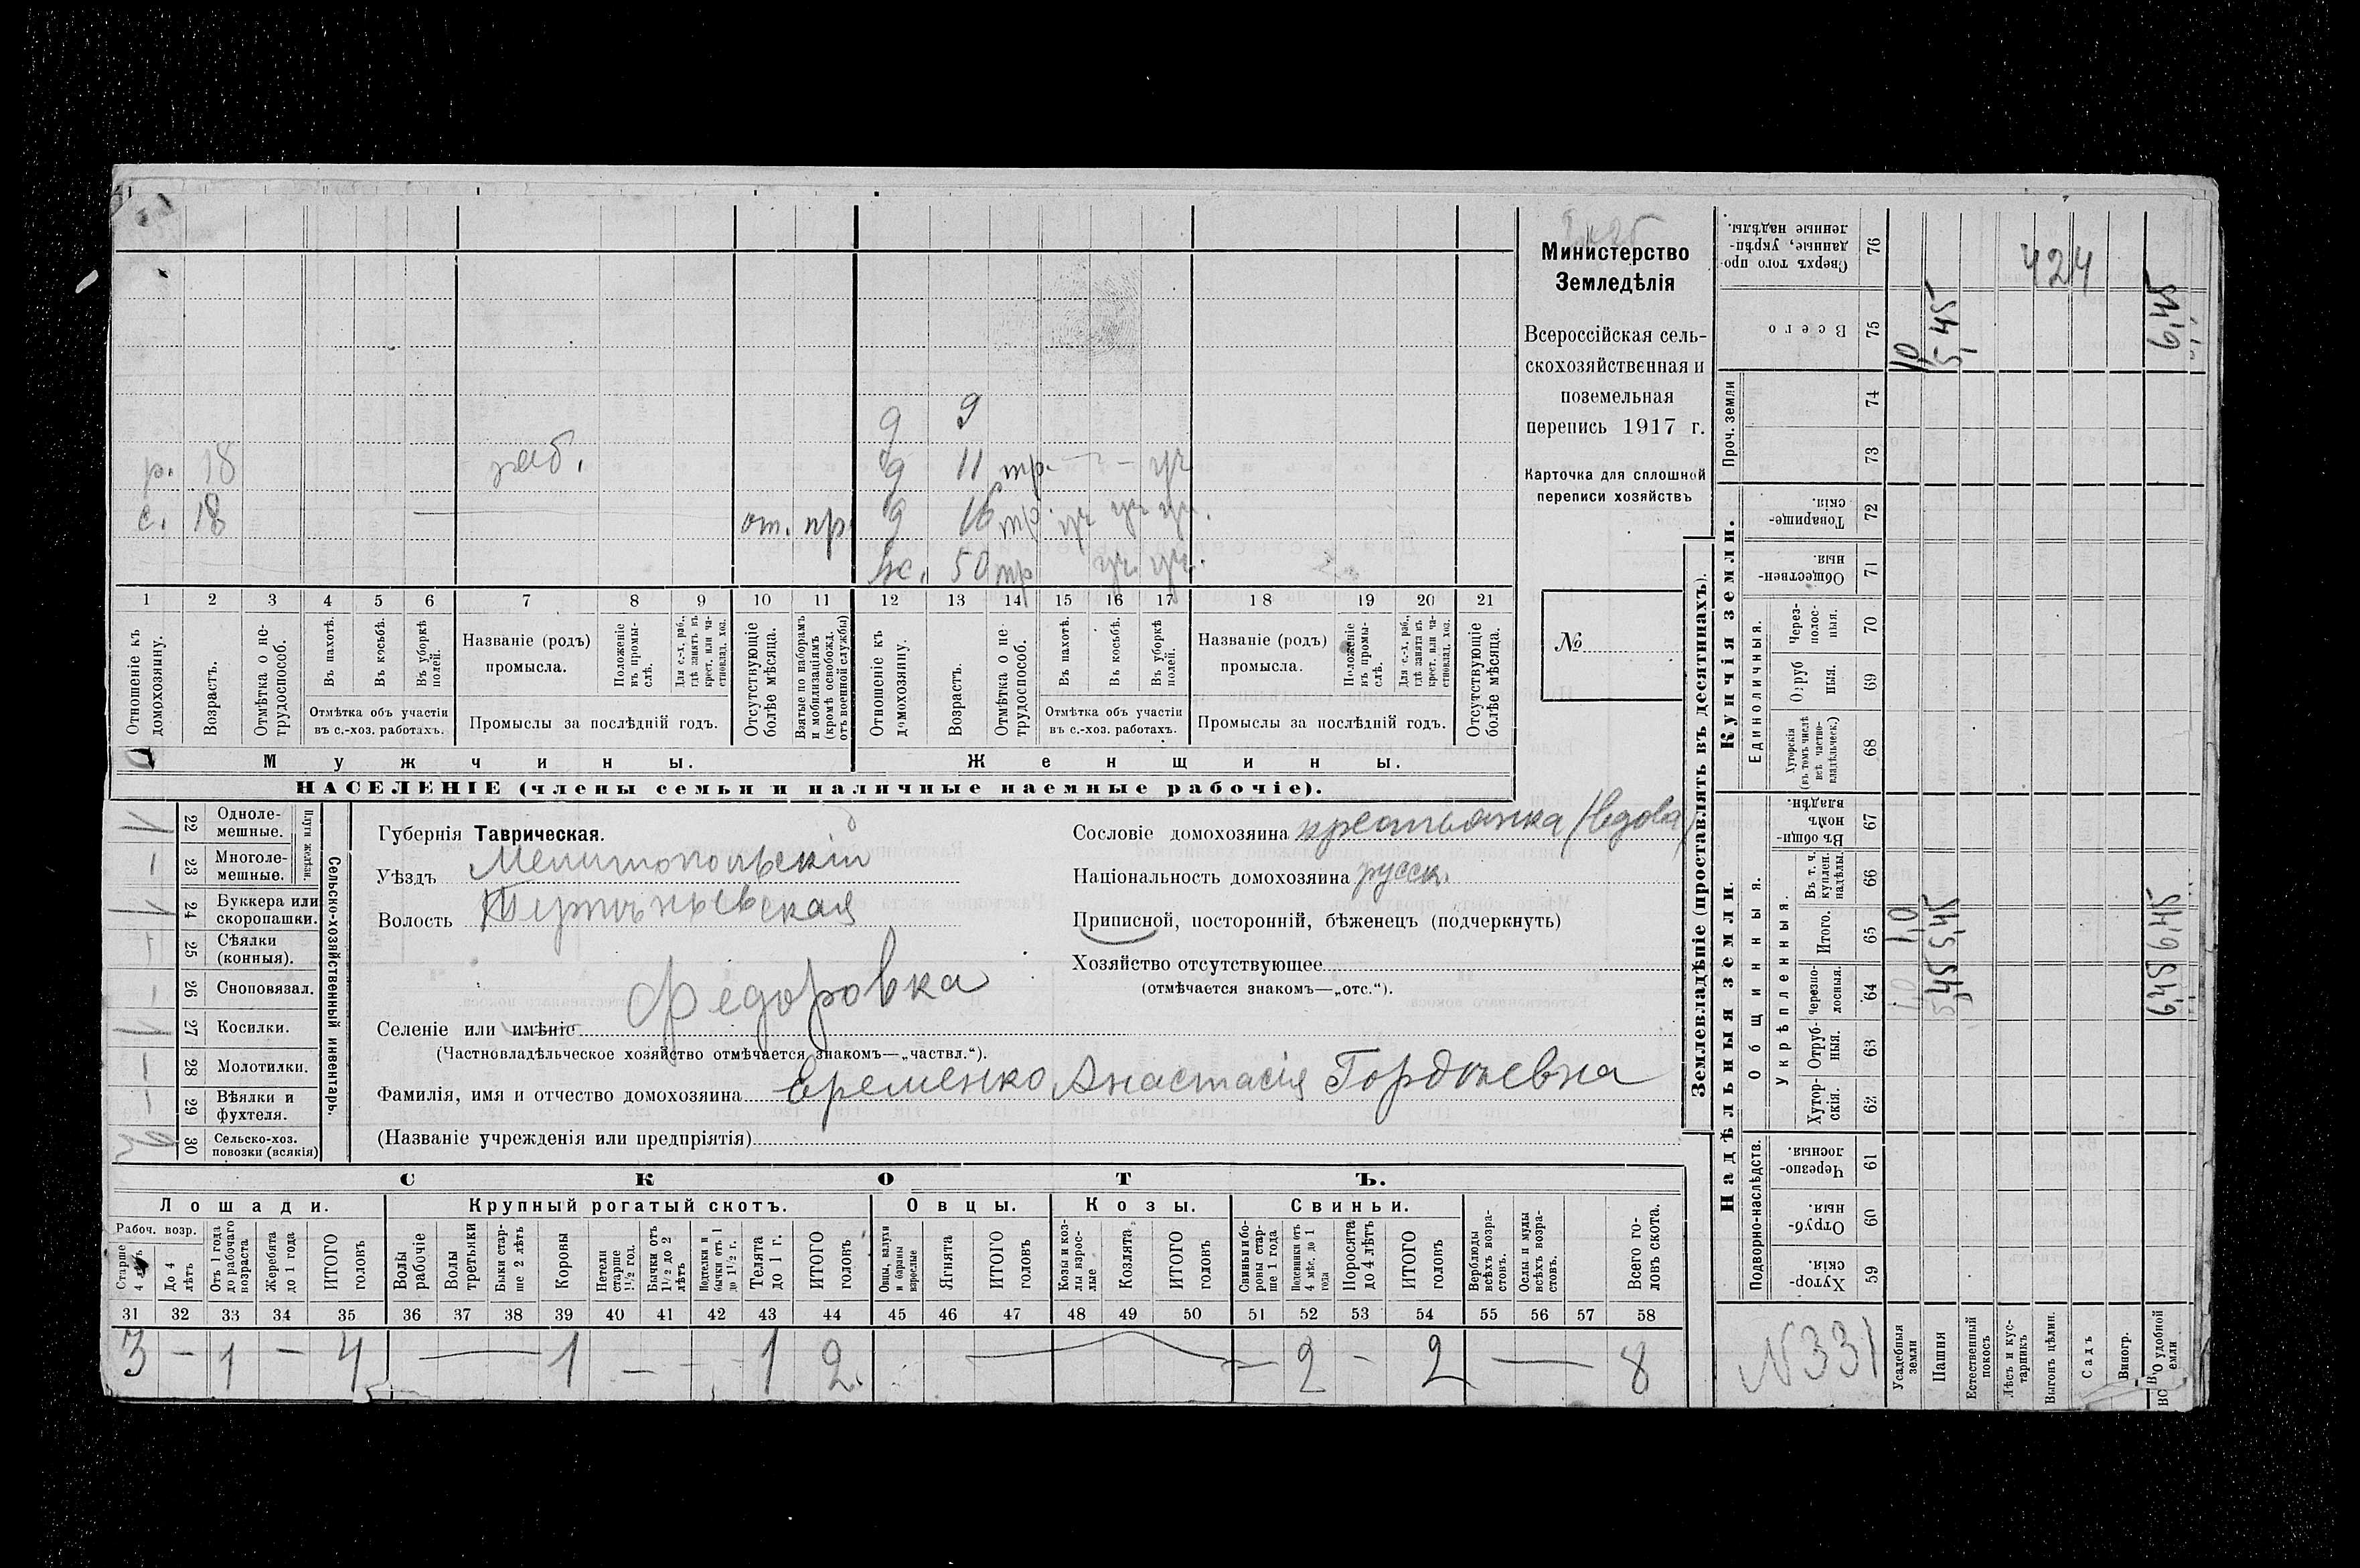 Министерство
Земледѣлія
Всероссійская сель-
скохозяйственная и
поземельная
перепись 1917 г.
Карточка для сплошной
переписи хозяйствъ
№
9 9
р. 18 раб. 9 11 тр. - - уч
с. 18 от. пр. 9 16 тр. уч уч уч.
ж. 50 тр уч. уч.
1 2 3 4 5 6 7 8 9 10 11 12 13 14 15 16 17 18 19 20 21
Отношеніе къ домохозяину.
Возрастъ.
Отмѣтка о не-трудоспособ.
Въ пахотѣ.
Въ косьбѣ.
Въ уборкѣ полей.
Отмѣтка объ участіи
въ с.-хоз. работахъ.
Названіе (родъ)
промысла.
Положеніе въ промы-слѣ.
Для с.-х. раб., гдѣ занятъ въ крест. или ча-стновлад. хоз.
Промыслы за послѣдній годъ.
Отсутствующіе болѣе мѣсяца.
Взятые по наборамъ и мобилизаціямъ (кромѣ освобожд. отъ военной службы)
Отношеніе къ домохозяину.
Возрастъ.
Отмѣтка о не-трудоспособ.
Въ пахотѣ.
Въ косьбѣ.
Въ уборкѣ полей.
Отмѣтка объ участіи
въ с.-хоз. работахъ.
Названіе (родъ)
промысла.
Положеніе въ промы-слѣ.
Для с.-х. раб., гдѣ занята въ крест. или ча-стновлад. хоз.
Промыслы за послѣдній годъ.
Отсутствующіе болѣе мѣсяца.
Мужчины.
Женщины.
НАСЕЛЕНІЕ (члены семьи и наличные наемные рабочіе).
Сельско-хозяйственный инвентарь.
Плуги желѣзн.
22 Одноле-мешные.
23 Многоле-мешные.
24 Буккера или скоропашки.
25 Сѣялки (конныя).
26 Сноповязал.
27 Косилки.
28 Молотилки.
29 Вѣялки и фухтеля.
30 Сельско-хоз. повозки (всякія)
Губернія Таврическая.
Уѣздъ Мелитопольскій
Волость
Селеніе или имѣніе Федоровка
(Частновладѣльческое хозяйство отмѣчается знакомъ—„частвл.“).
Фамилія, имя и отчество домохозяина Еременко Анастасія Гордѣевна
(Названіе учрежденія или предпріятія)
Сословіе домохозяина крестьянка /вдова/
Національность домохозяина русск.
Приписной, посторонній, бѣженецъ (подчеркнуть)
Хозяйство отсутствующее
(отмѣчается знакомъ—„отс.“).
СКОТЪ.
Лошади.
Крупный рогатый скотъ.
Овцы.
Козы.
Свиньи.
Рабоч. возр.
Старше 4 лѣтъ
До 4 лѣтъ
Отъ 1 года до рабочаго возраста
Жеребята до 1 года
ИТОГО головъ
Волы рабочіе
Волы третьяки
Быки стар-ше 2 лѣтъ
Коровы
Нетели старше 1½ год.
Бычки отъ 1½ до 2 лѣтъ
Подтелки и бычки отъ 1 до 1½ г.
Телята до 1 г.
ИТОГО головъ
Овцы, валухи и бараны взрослые
Ягнята
ИТОГО головъ
Козы и коз-лы взрос-лые
Козлята
ИТОГО головъ
Свиньи и бо-ровы стар-ше 1 года
Подсвинки отъ 4 мѣс. до 1 года
Поросята до 4 лѣтъ
ИТОГО головъ
Верблюды всѣхъ возра-стовъ.
Ослы и мулы всѣхъ возра-стовъ.
Всего го-ловъ скота.
31 32 33 34 35 36 37 38 39 40 41 42 43 44 45 46 47 48 49 50 51 52 53 54 55 56 57 58
3 - 1 - 4 — 1 - - - 1 2. — - 2 - 2 — 8
Землевладѣніе (проставлять въ десятинахъ).
Надѣльныя земли.
Купчія земли.
Проч. земли
Подворно-наслѣдств.
Общинныя.
Укрѣпленныя.
Единоличныя.
Хутор-скія. 59
Отруб-ныя. 60
Черезпо-лосныя. 61
Хутор-скія. 62
Отруб-ныя. 63
Черезпо-лосныя. 64
Итого. 65
Въ т. ч. куплен. надѣлы. 66
Въ общи-номъ владѣн. 67
Хуторскія (въ томъ числѣ всѣ частно-владѣльческ.) 68
Отруб ныя. 69
Через-полос-ныя. 70
Обществен-ныя. 71
Товарище-скія. 72
73
74
Всего 75
Сверхъ того про-данные, укрѣп-ленные надѣлы. 76
N331
Усадебныя земли 1,0 1,0 1,0
Пашня 5,45 5,45 5,45
Естественный покосъ
Лѣсъ и кус-тарникъ
Выгонъ цѣлин.
Садъ
Виногр.
удобной земли 6,45 6,45 6,45
424